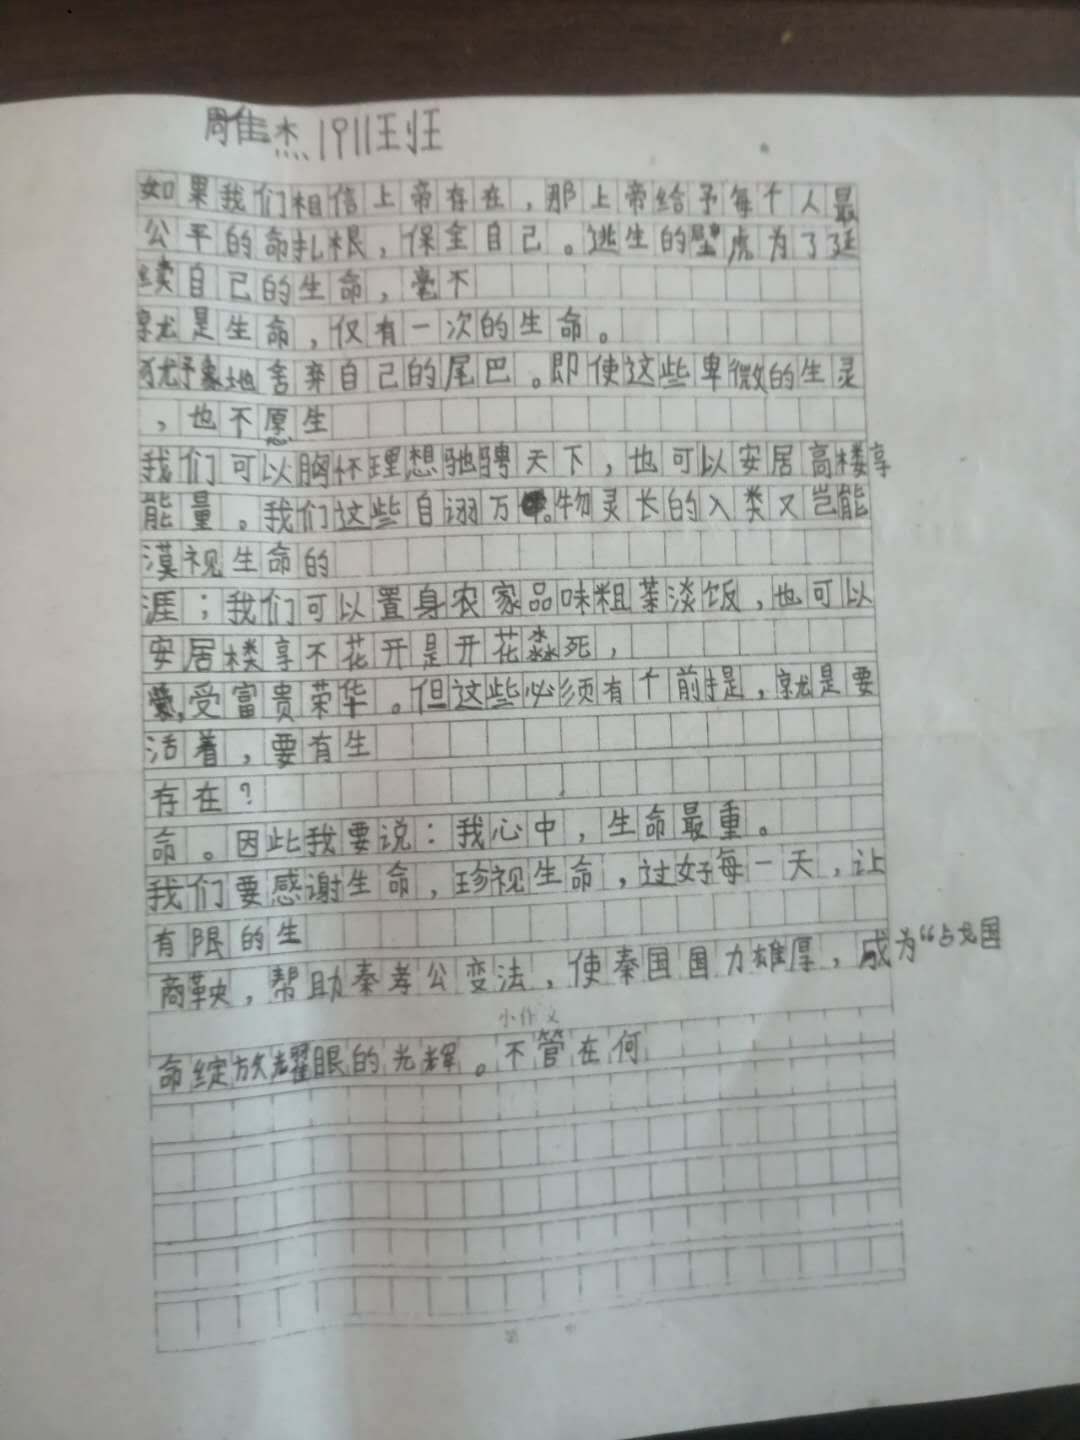 周佳杰 1911班
如果我们相信上帝存在，那上帝给予每个人最
公平的命扎根，保全自己。逃生的壁虎为了延
续自己的生命，毫不
就是生命，仅有一次的生命。
犹予象地舍弃自己的尾巴。即使这些卑微的生灵
，也不愿生
我们可以胸怀理想驰骋天下，也可以安居高楼享
能量。我们这些自诩万物灵长的人类又岂能
漠视生命的
涯；我们可以置身农家品味粗茶淡饭，也可以
安居楼享不花开是开花淼死，
受富贵荣华。但这些必须有个前提，就是要
活着，要有生
存在？
命。因此我要说：我心中，生命最重。
我们要感谢生命，珍视生命，过好每一天，让
有限的生
商鞅，帮助秦孝公变法，使秦国国力雄厚，成为“战国
小作文
命绽放耀眼的光辉。不管在何